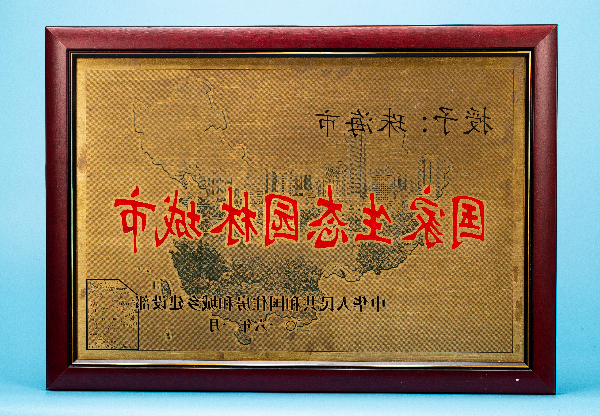 授予：珠海市
国家生态园林城市
中华人民共和国住房和城乡建设部
二〇一六年一月